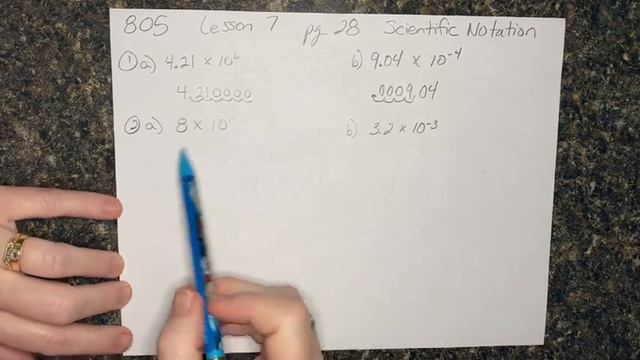 805 Lesson 7 pg 28 Scientific Notation
① a) 4.21 × 10⁶ b) 9.04 × 10⁻⁴
4.210000 .0009.04
② a) 8 × 10 b) 3.2 × 10⁻³